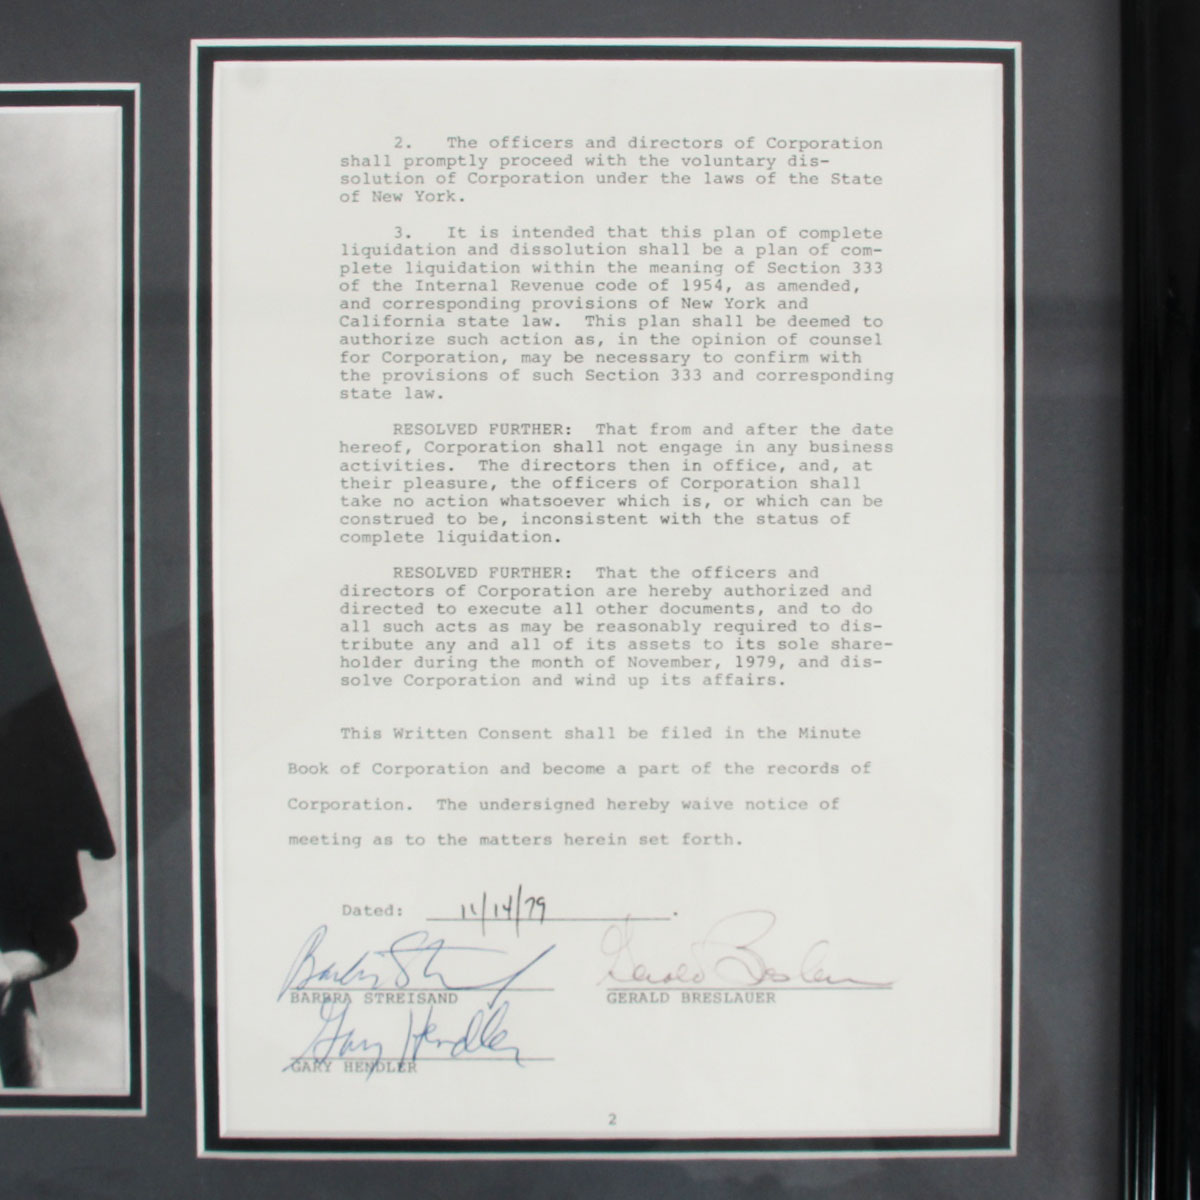 2. The officers and directors of Corporation
shall promptly proceed with the voluntary dis-
solution of Corporation under the laws of the State
of New York.
3. It is intended that this plan of complete
liquidation and dissolution shall be a plan of com-
plete liquidation within the meaning of Section 333
of the Internal Revenue code of 1954, as amended,
and corresponding provisions of New York and
California state law. This plan shall be deemed to
authorize such action as, in the opinion of counsel
for Corporation, may be necessary to confirm with
the provisions of such Section 333 and corresponding
state law.
RESOLVED FURTHER: That from and after the date
hereof, Corporation shall not engage in any business
activities. The directors then in office, and, at
their pleasure, the officers of Corporation shall
take no action whatsoever which is, or which can be
construed to be, inconsistent with the status of
complete liquidation.
RESOLVED FURTHER: That the officers and
directors of Corporation are hereby authorized and
directed to execute all other documents, and to do
all such acts as may be reasonably required to dis-
tribute any and all of its assets to its sole share-
holder during the month of November, 1979, and dis-
solve Corporation and wind up its affairs.
This Written Consent shall be filed in the Minute
Book of Corporation and become a part of the records of
Corporation. The undersigned hereby waive notice of
meeting as to the matters herein set forth.
Dated: 11/14/79.
Barbra Streisand Gerald Breslauer
BARBRA STREISAND GERALD BRESLAUER
Gary Hendler
GARY HENDLER
2